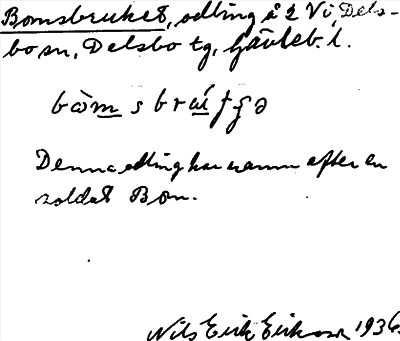 Bomsbruket, odling å 2 Vi Dels-
bo sn, Delsbo tg, Gävleb. l.
Denna odling har namn efter en
soldat Bom.
Nils Erik Erikson 1936.